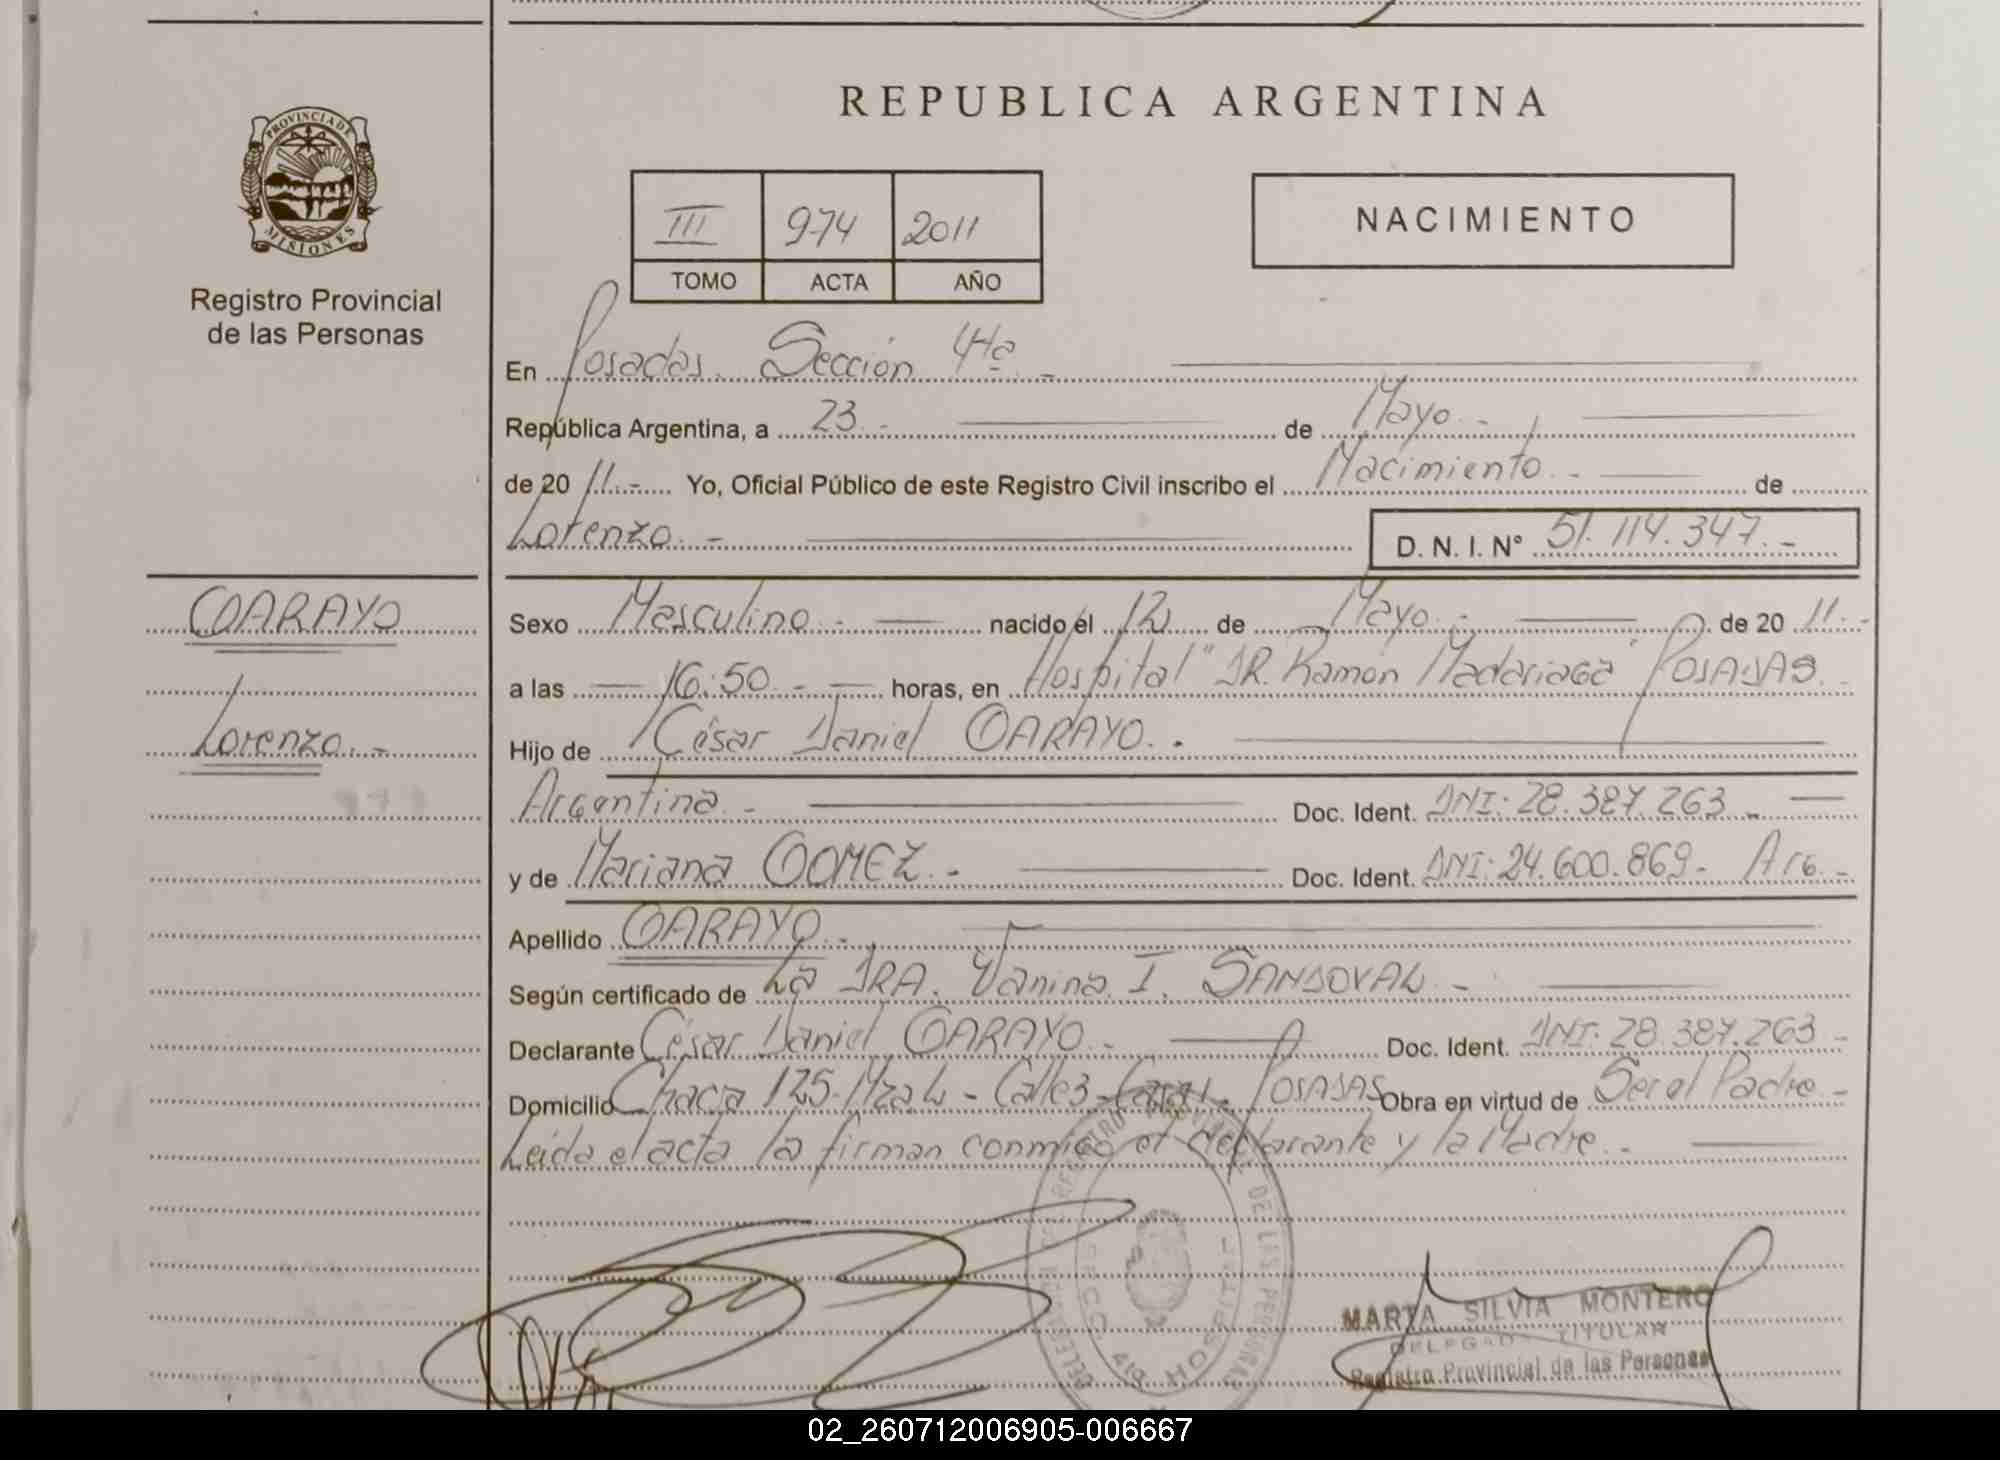 REPUBLICA ARGENTINA
PROVINCIA DE
MISIONES
Registro Provincial
de las Personas
III 974 2011
TOMO ACTA AÑO
NACIMIENTO
En Posadas. Sección 4ta -
República Argentina, a 23 - de Mayo -
de 20 11.- Yo, Oficial Público de este Registro Civil inscribo el Nacimiento - de
Lorenzo - D. N. I. Nº 51.114.347.-
GARAYO
Lorenzo.-
Sexo Masculino - nacido el 12 de Mayo - de 20 11.-
a las 16:50.- horas, en Hospital "DR. Ramón Madariaga" POSADAS.
Hijo de César Daniel GARAYO.
Argentina.- Doc. Ident. DNI: 28.387.263 -
y de Mariana GOMEZ.- Doc. Ident. DNI: 24.600.869- Arg.-
Apellido GARAYO.-
Según certificado de La DRA. Vanina I. SANDOVAL -
Declarante César Daniel GARAYO.- Doc. Ident. DNI: 28.387.263 -
Domicilio Chacra 125. Mza L - Calle 3 - Casa 1. POSADAS Obra en virtud de Ser el Padre -
Leída el acta la firman conmigo el declarante y la Madre.-
SECC. 4ta HOSPITAL
DE LAS PERSONAS
MARTA SILVIA MONTERO
DELEGADA TITULAR
Registro Provincial de las Personas
02_260712006905-006667